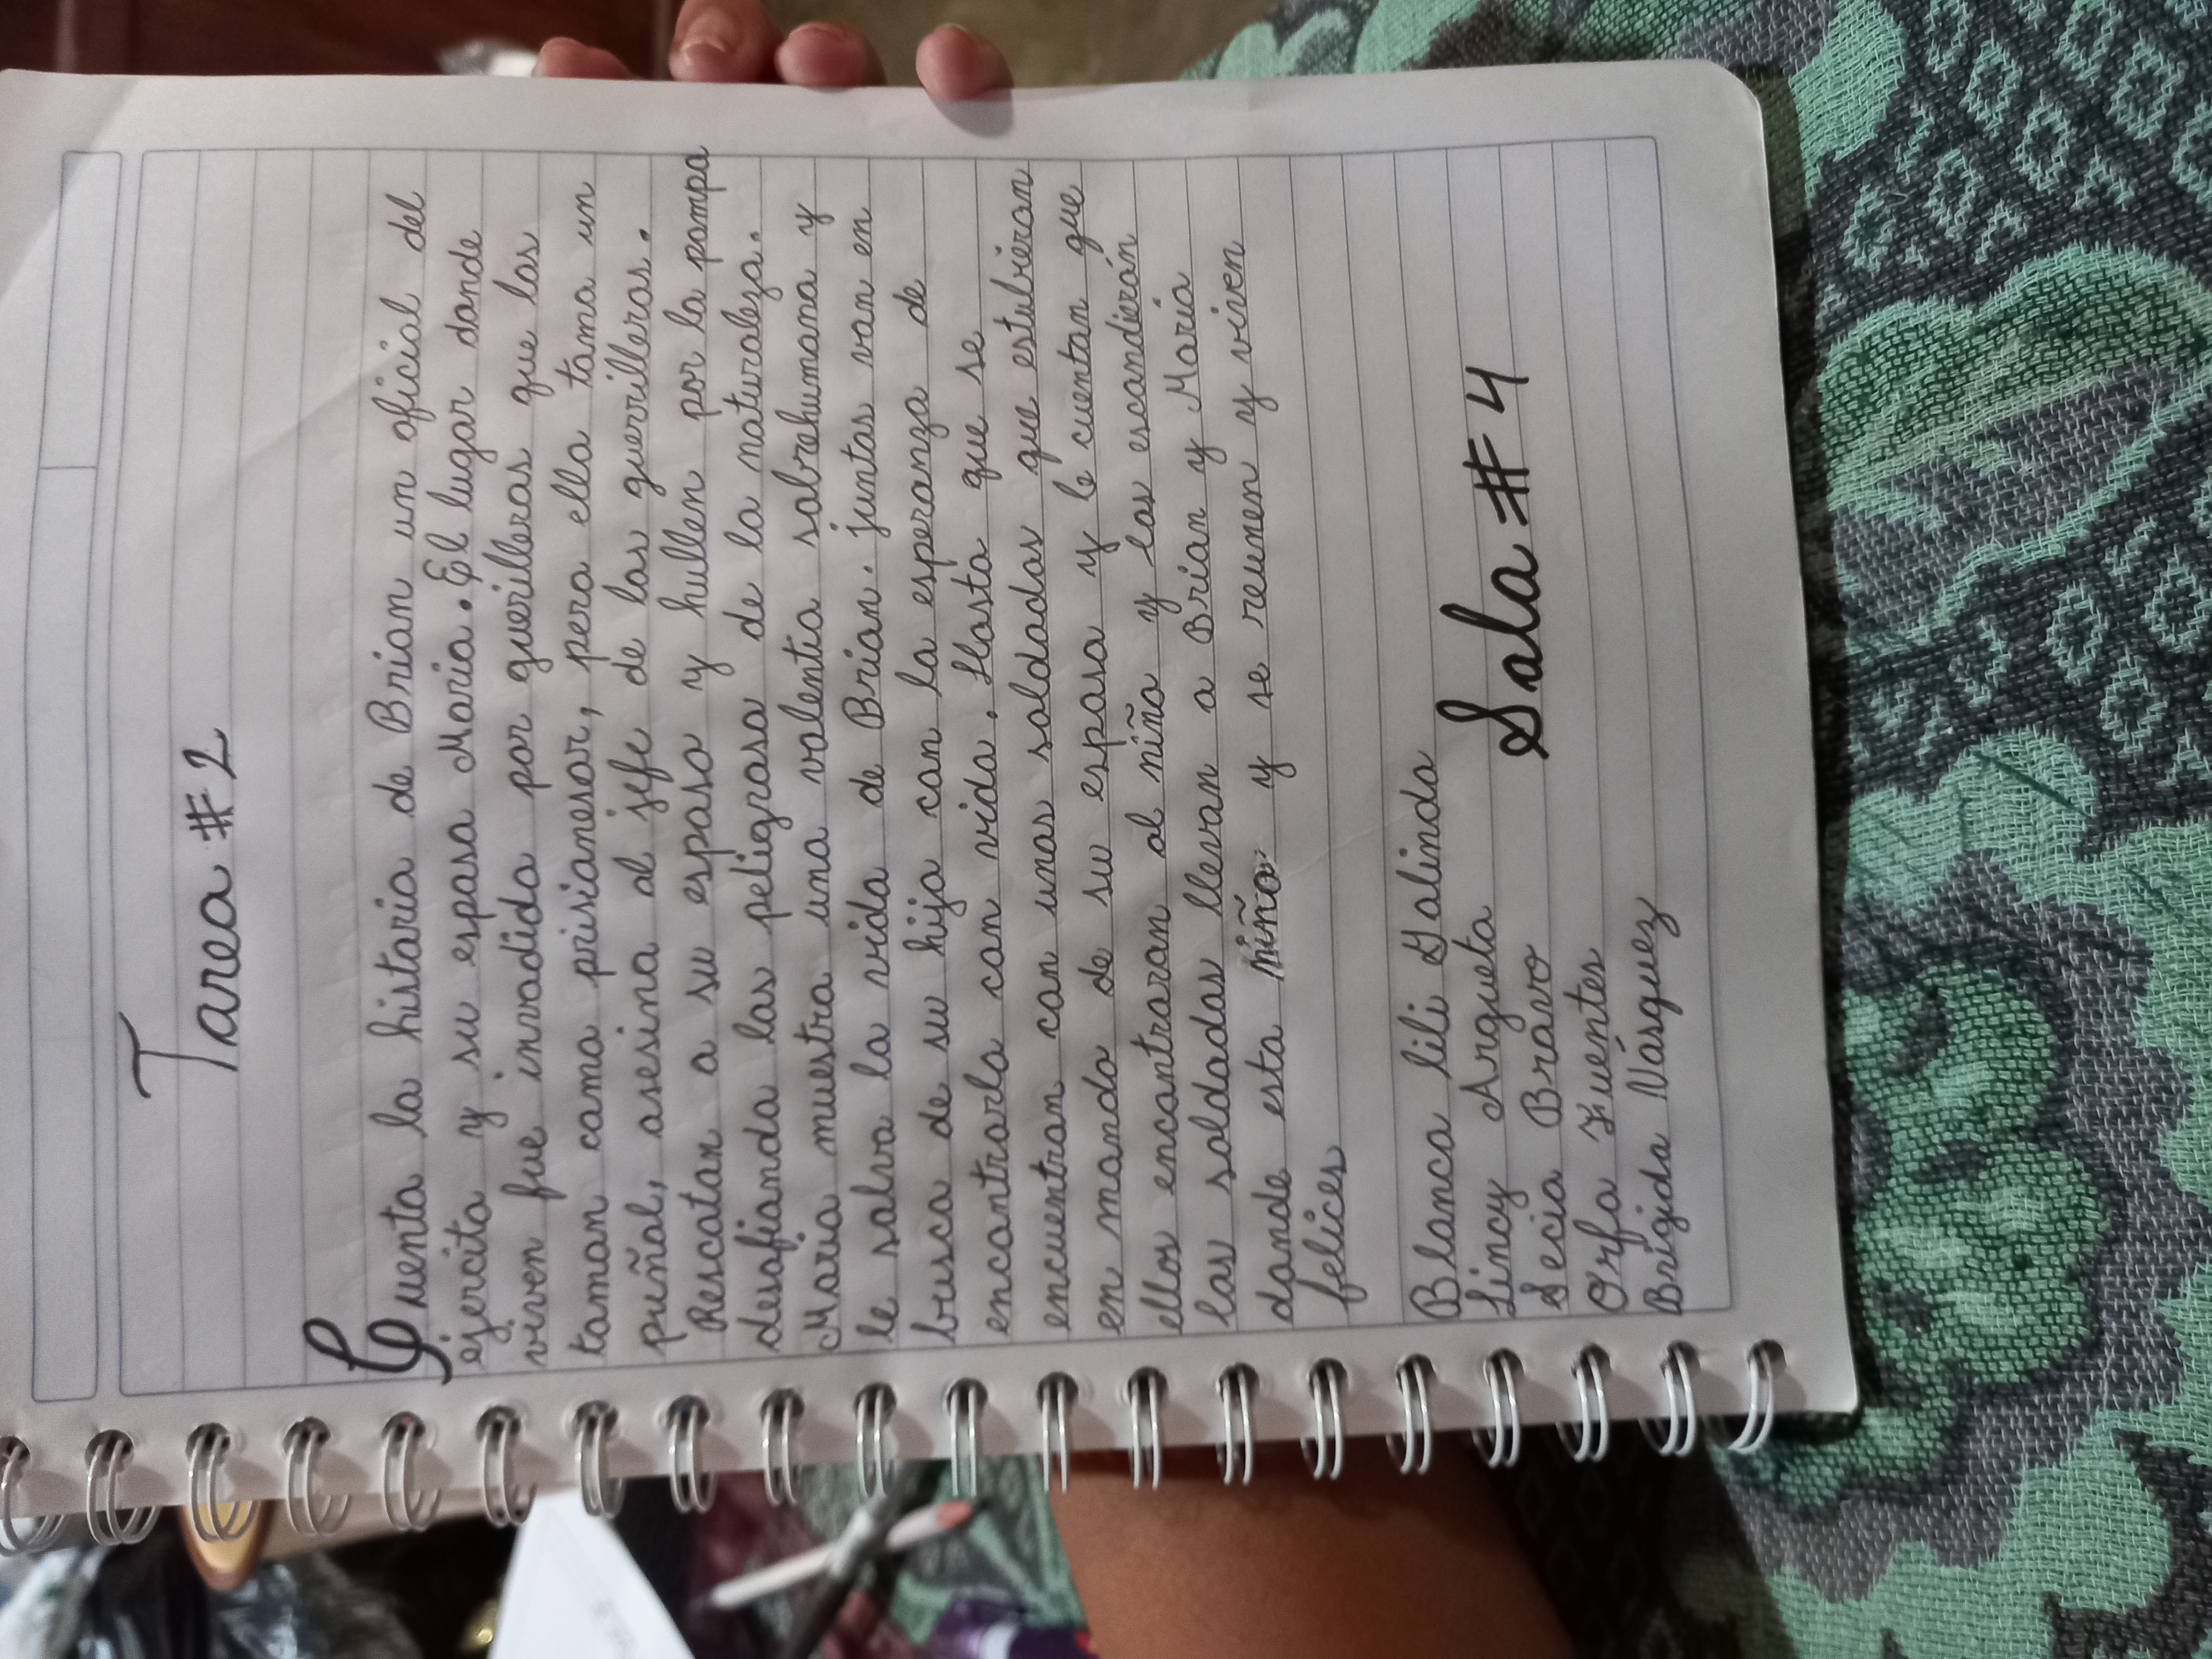 Tarea # 2
Cuenta la historia de Brian un oficial del
ejercito y su esposa Maria. El lugar donde
viven fue invadido por guerilleros que los
toman como prisioneros, pero ella toma un
puñal, asesina al jefe de los guerrilleros.
Rescatan a su esposo y hullen por la pampa
desafiando los peligroso de la naturaleza.
Maria muestra una valentia sobrehumana y
le salva la vida de Brian. juntos van en
busca de su hijo con la esperanza de
encontrarlo con vida. Hasta que se
encuentran con unos soldados que estubieran
en mando de su esposo y le cuentan que
ellos encontraron al niño y los escondierón
los soldados llevan a Brian y Maria
donde esta niño y se reunen y viven
felices
Blanca lili Galindo
Lincy Argueta
Secia Bravo
Orfa Fuentes
Brigida Vásquez
Sala # 4